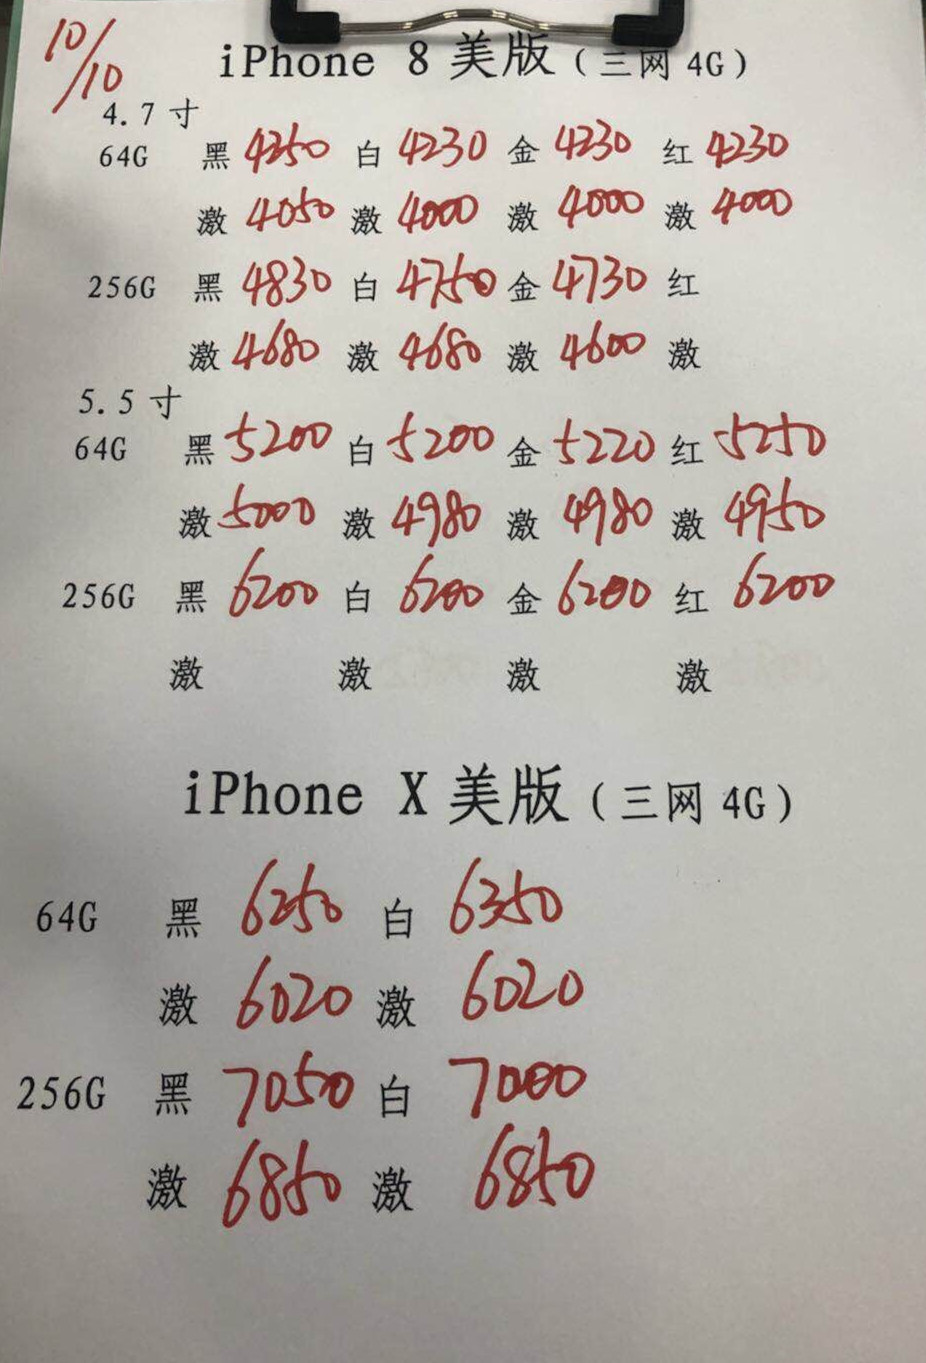 10/10
iPhone 8 美版（三网 4G）
4.7 寸
64G 黑 4250 白 4230 金 4230 红 4230
激 4050 激 4000 激 4000 激 4000
256G 黑 4830 白 4750 金 4730 红
激 4680 激 4680 激 4600 激
5.5 寸
64G 黑 5200 白 5200 金 5220 红 5250
激 5000 激 4980 激 4980 激 4950
256G 黑 6200 白 6200 金 6200 红 6200
激 激 激 激
iPhone X 美版（三网 4G）
64G 黑 6250 白 6350
激 6020 激 6020
256G 黑 7050 白 7000
激 6850 激 6850